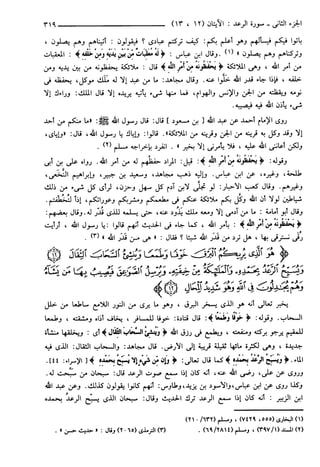 الجزء الثاني - سورة الرعد : الآيتان (١٢ ، ١٣)
٣١٩
باتوا فيكم فيسألهم وهو أعلم بكم: كيف تركتم عبادى ؟ فيقولون : أتيناهم وهم يصلون ،
وتركناهم وهم يصلون » (١) وقال ابن عباس : ﴿ لَهُ مُعَقِّبَاتٌ مِّنْ بَيْنِ يَدَيْهِ وَمِنْ خَلْفِهِ ﴾ : المعقبات
من أمر الله ، وهى الملائكة ﴿ يَحْفَظُونَهُ مِنْ أَمْرِ اللَّهِ ﴾ قال : ملائكة يحفظونه من بين يديه ومن
خلفه ، فإذا جاء قدر الله خَلَّوا عنه. وقال مجاهد: ما من عبد إلا له مَلَك موكل، يحفظه فى
نومه ويقظته من الجن والإنس والهوام، فما منها شىء يأتيه يريده إلا قال الملك: وراءك إلا
شىء يأذن الله فيه فيصيبه.
روى الإمام أحمد عن عبد الله [ بن مسعود ] قال: قال رسول الله ﷺ: «ما منكم من أحد
إلا وقد وكل به قرينه من الجن وقرينه من الملائكة». قالوا: وإياك يا رسول الله، قال: «وإياى،
ولكن أعاننى الله عليه ، فلا يأمرنى إلا بخير » . انفرد بإخراجه مسلم (٢) .
وقوله: ﴿ يَحْفَظُونَهُ مِنْ أَمْرِ اللَّهِ ﴾ قيل: المراد حفظهم له من أمر الله. رواه على بن أبى
طلحة، وغيره، عن ابن عباس. وإليه ذهب مجاهد، وسعيد بن جبير، وإبراهيم النَّخَعى،
وغيرهم. وقال كعب الأحبار: لو تجلَّى لابن آدم كل سهل وحزن، لرأى كل شىء من ذلك
شياطين لولا أن الله وكَّل بكم ملائكة عنكم فى مطعمكم ومشربكم وعوراتكم، إذاً لتُخُطِّفتم.
وقال أبو أمامة : ما من آدمى إلا ومعه ملك يذود عنه، حتى يسلمه للذى قُدِّر له. وقال بعضهم:
﴿ يَحْفَظُونَهُ مِنْ أَمْرِ اللَّهِ ﴾ : بأمر الله ، كما جاء فى الحديث أنهم قالوا : يا رسول الله ، أرأيت
رقى نسترقى بها ، هل ترد من قَدَر الله شيئا ؟ فقال : « هى من قَدَر الله » (٣) .
﴿ هُوَ الَّذِي يُرِيكُمُ الْبَرْقَ خَوْفًا وَطَمَعًا وَيُنْشِئُ السَّحَابَ الثِّقَالَ ۝ وَيُسَبِّحُ
الرَّعْدُ بِحَمْدِهِ وَالْمَلَائِكَةُ مِنْ خِيفَتِهِ وَيُرْسِلُ الصَّوَاعِقَ فَيُصِيبُ بِهَا مَنْ يَشَاءُ
وَهُمْ يُجَادِلُونَ فِي اللَّهِ وَهُوَ شَدِيدُ الْمِحَالِ ۝ ﴾
يخبر تعالى أنه هو الذى يسخر البرق ، وهو ما يرى من النور اللامع ساطعا من خلل
السحاب. وقوله: ﴿ خَوْفًا وَطَمَعًا ﴾: قال قتادة: خوفا للمسافر ، يخاف أذاه ومشقته ، وطمعا
للمقيم يرجو بركته ومنفعته ، ويطمع فى رزق الله ﴿ وَيُنْشِئُ السَّحَابَ الثِّقَالَ ﴾ أى : ويخلقها منشأة
جديدة ، وهى لكثرة مائها ثقيلة قريبة إلى الأرض. قال مجاهد: والسحاب الثقال: الذى فيه
الماء. ﴿ وَيُسَبِّحُ الرَّعْدُ بِحَمْدِهِ ﴾ كما قال تعالى: ﴿ وَإِنْ مِنْ شَيْءٍ إِلَّا يُسَبِّحُ بِحَمْدِهِ ﴾ [ الإسراء: ٤٤].
وروى عن على، رضى الله عنه، أنه كان إذا سمع صوت الرعد قال: سبحان من سبَّحت له.
وكذا روى عن ابن عباس، والأسود بن يزيد، وطاوس: أنهم كانوا يقولون كذلك. وعن عبد الله
ابن الزبير : أنه كان إذا سمع الرعد ترك الحديث وقال: سبحان الذى يسبِّح الرعدُ بحمده
(١) البخارى (٥٥٥، ٧٤٢٩) ، ومسلم (٦٣٢/ ٢١٠)
(٢) المسند (٣٩٧/١) ، ومسلم (٢٨١٤/ ٦٩).
(٣) الترمذى (٢٠٦٥) وقال : « حديث حسن » .